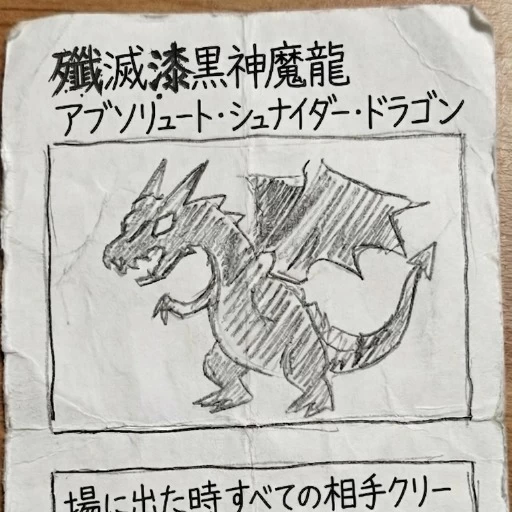 殲滅漆黒神魔龍
アブソリュート・シュナイダー・ドラゴン
場に出た時すべての相手クリー